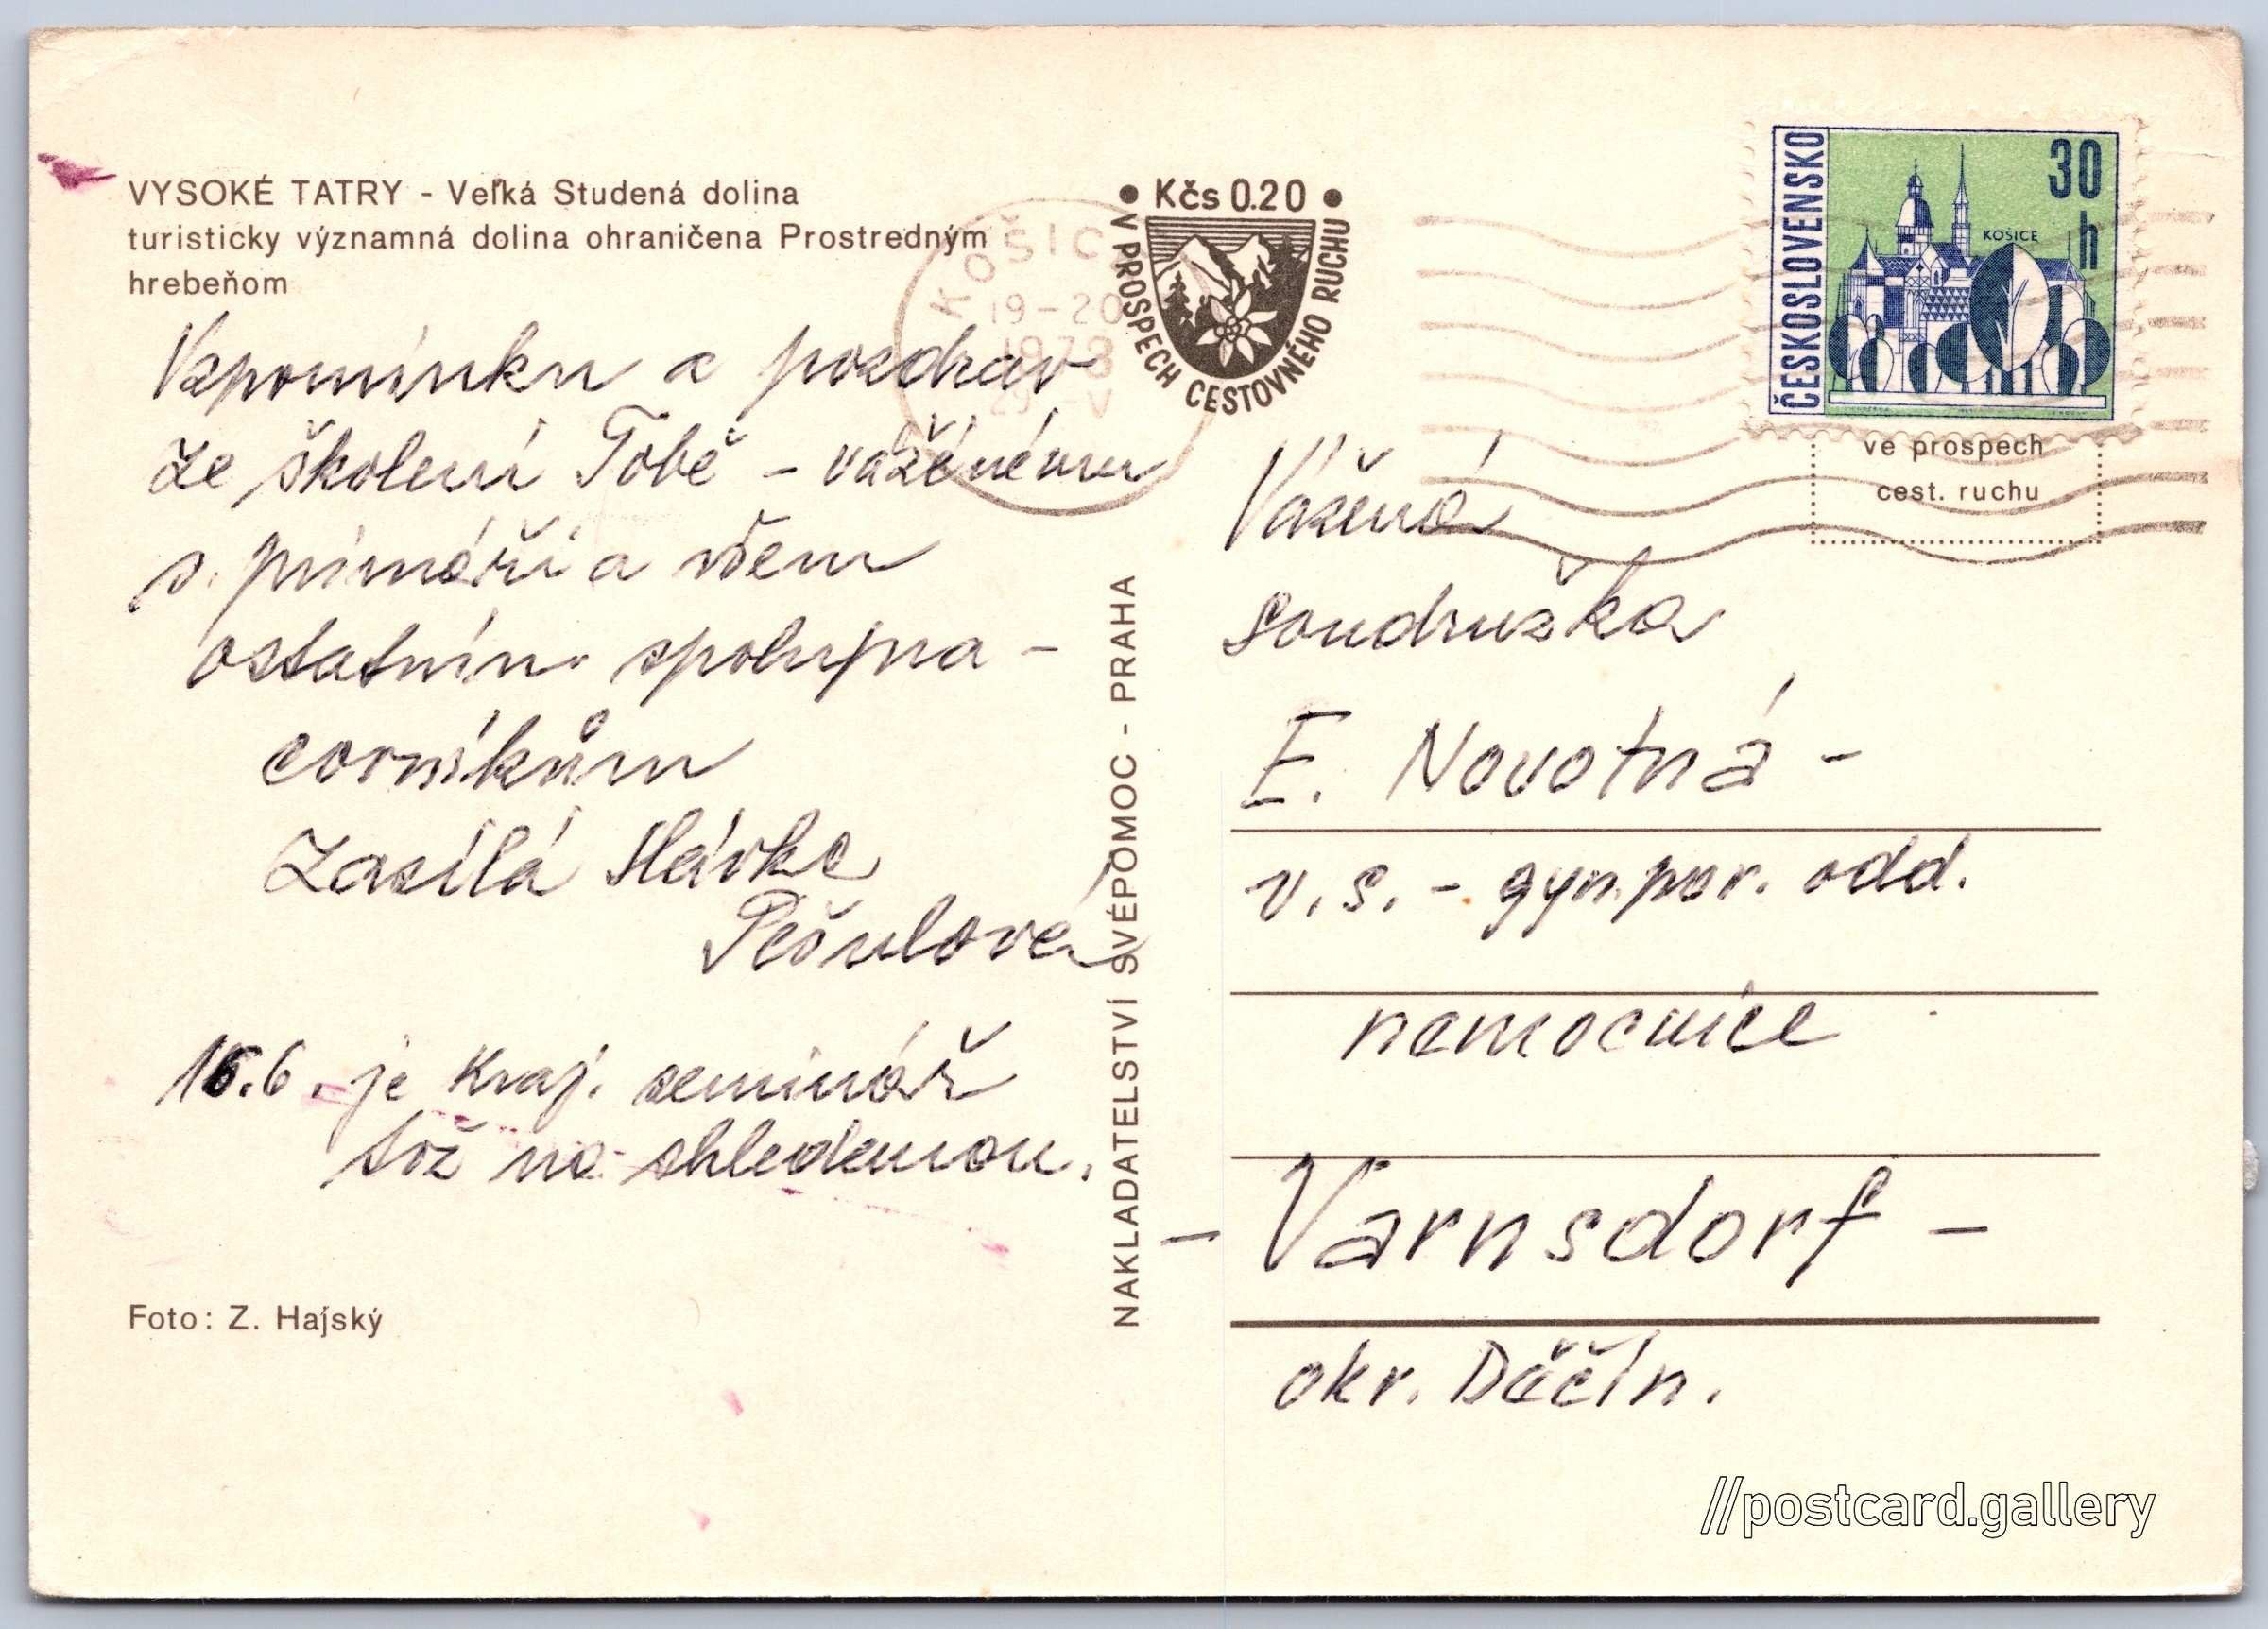 VYSOKÉ TATRY - Veľká Studená dolina
turisticky významná dolina ohraničena Prostredným
hrebeňom
Vzpomínku a pozdrav
ze školení Tobě - váženému
s. primáři a všem
ostatním spolupra-
covníkům
Zasílá Slávka
Pešulová
16.6. je Kraj. seminář
tož na shledanou.
Foto: Z. Hajský
NAKLADATELSTVÍ SVÉPOMOC - PRAHA
Kčs 0.20
V PROSPECH CESTOVNÉHO RUCHU
KOŠIC
19-20
1973
29 -V
ČESKOSLOVENSKO
30
h
KOŠICE
ve prospech
cest. ruchu
Vážená
Soudružka
E. Novotná -
v. s. - gyn. por. odd.
nemocnice
- Varnsdorf -
okr. Děčín.
//postcard.gallery